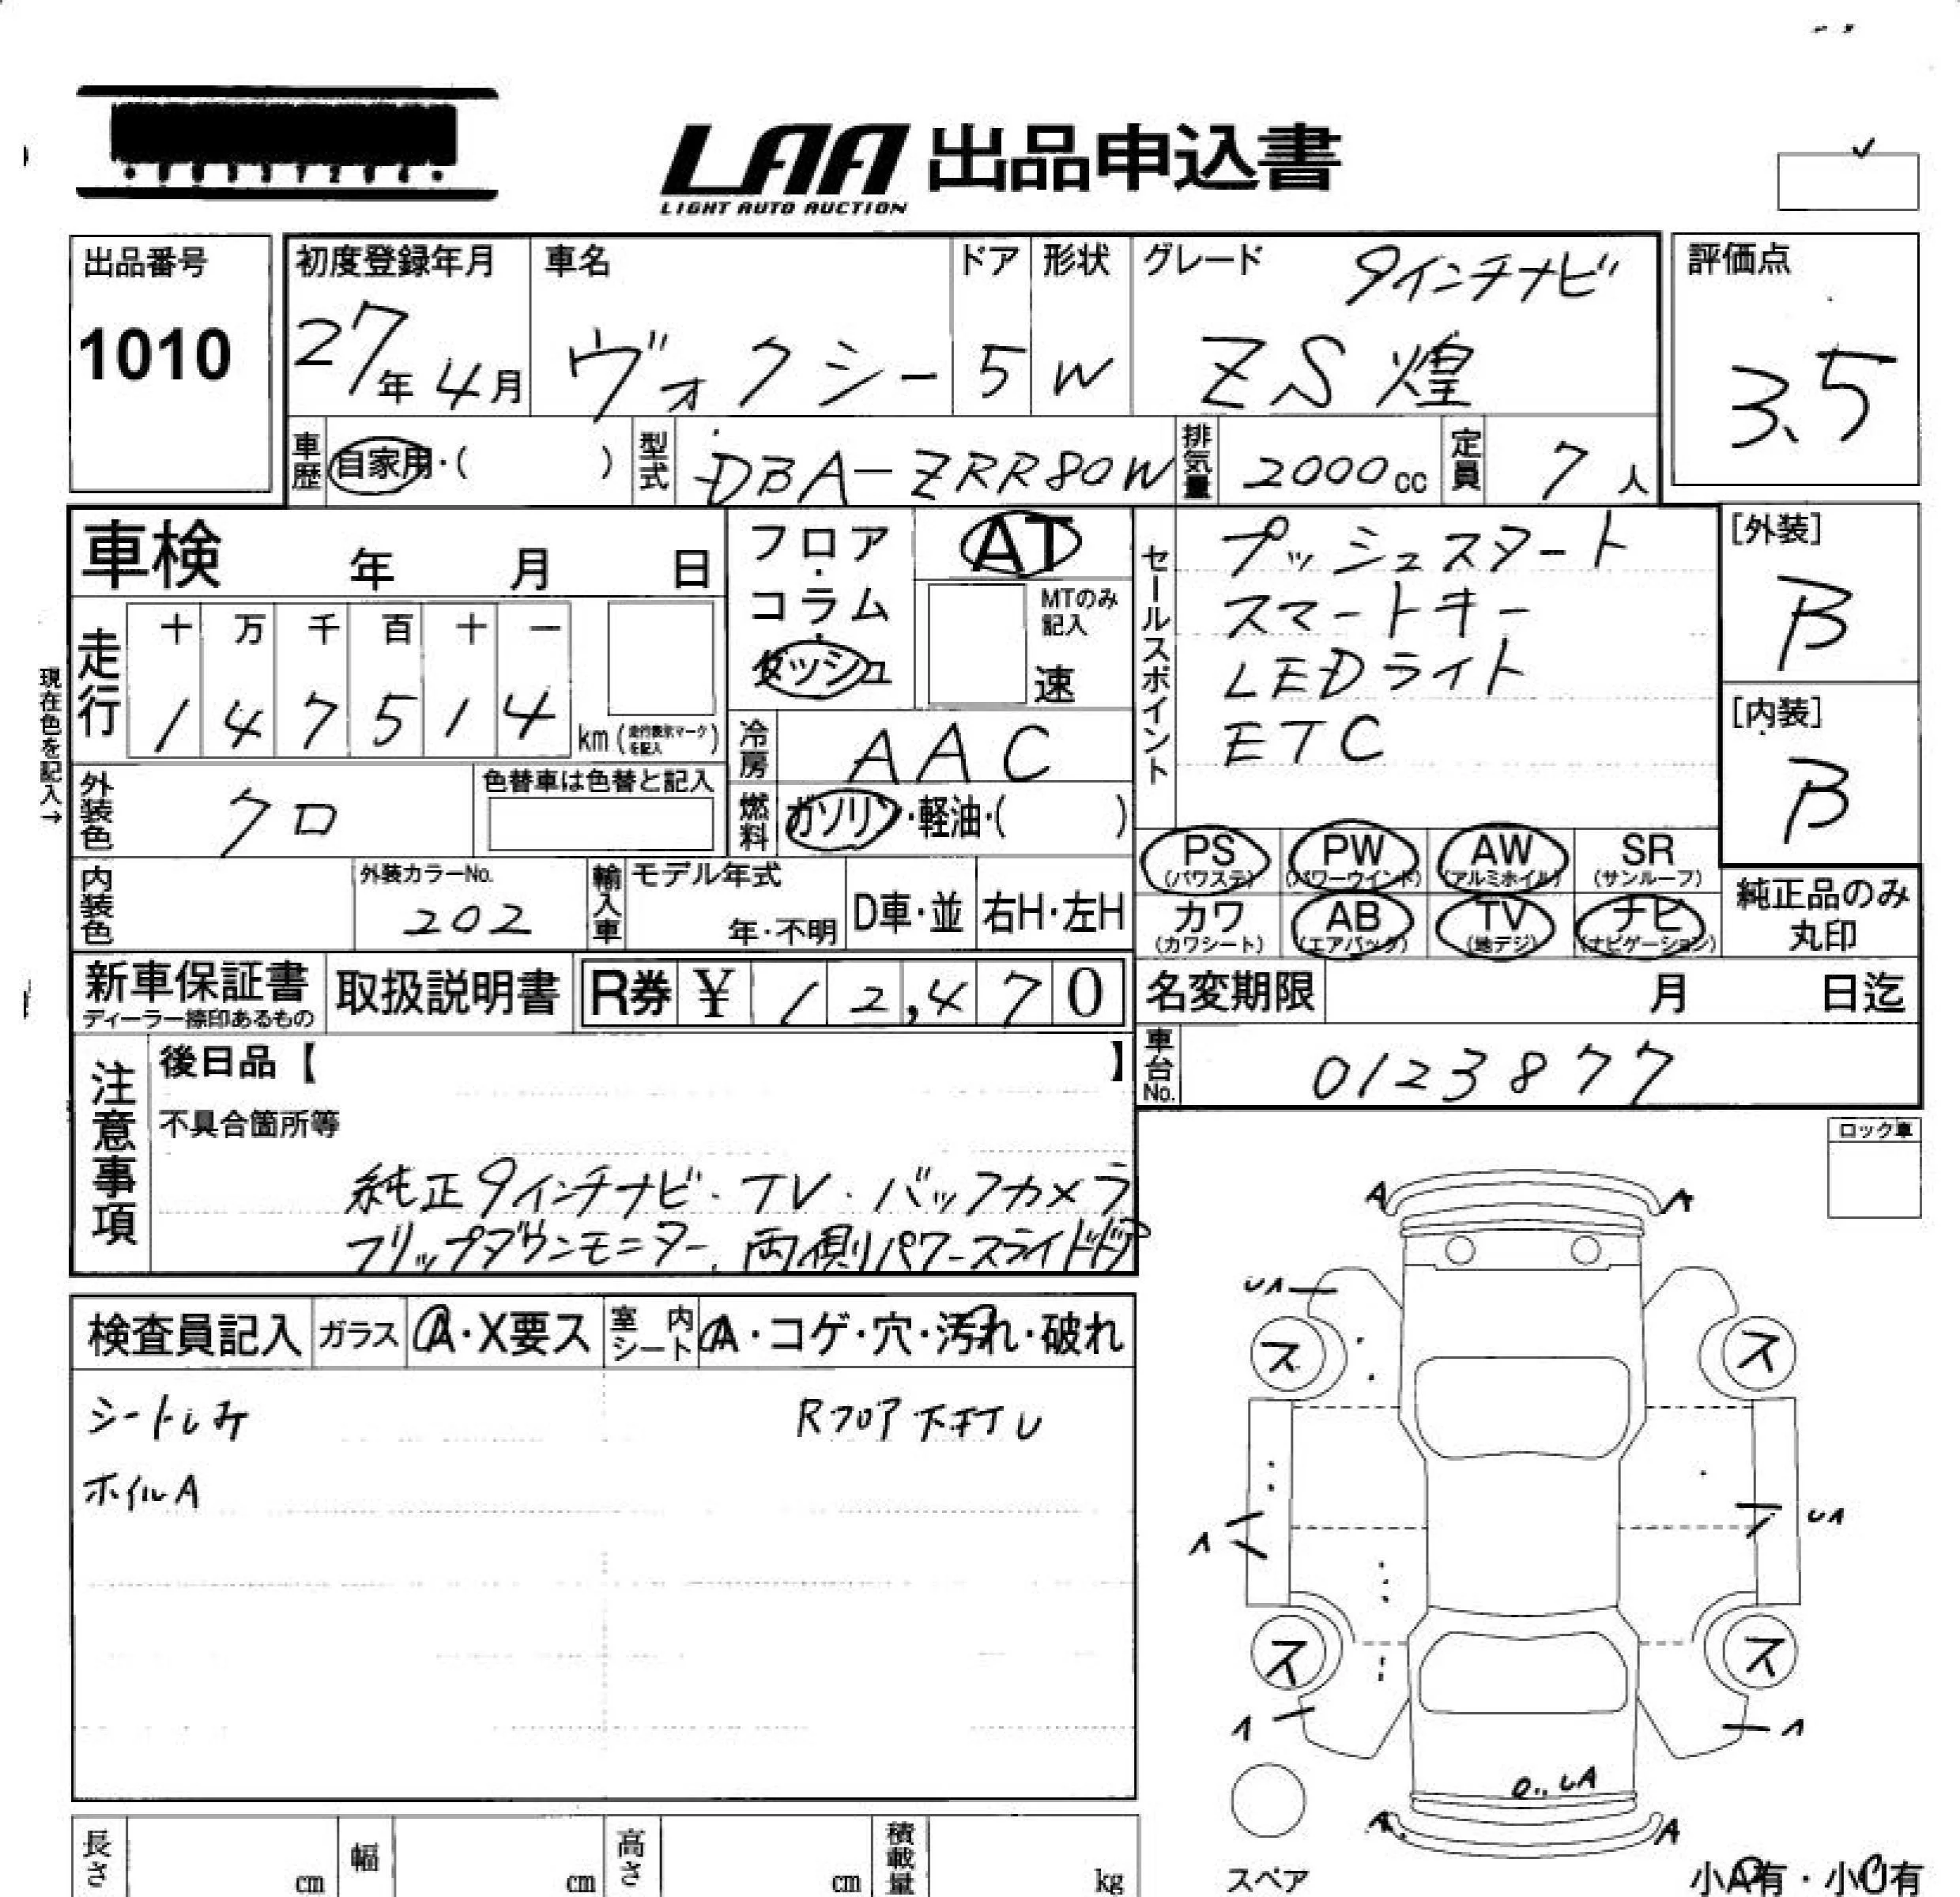 LAA 出品申込書
LIGHT AUTO AUCTION
出品番号
1010
初度登録年月
27年4月
車名
ヴォクシー
ドア
5
形状
W
グレード
9インチナビ
ZS 煌
評価点
3.5
車歴 自家用・( )
型式 DBA-ZRR80W
排気量 2000cc
定員 7人
車検 年 月 日
走行
十 万 千 百 十 一
1 4 7 5 1 4 km (走行表示マークを記入)
現在色を記入→
外装色 クロ
色替車は色替と記入
内装色
外装カラーNo.
202
輸入車
モデル年式
年・不明
D車・並
右H・左H
フロア・コラム・ダッシュ
AT
MTのみ記入
速
冷房 AAC
燃料 ガソリン・軽油・( )
セールスポイント
プッシュスタート
スマートキー
LEDライト
ETC
[外装]
B
[内装]
B
PS (パワステ) PW (パワーウインド) AW (アルミホイル) SR (サンルーフ)
カワ (カワシート) AB (エアバッグ) TV (地デジ) ナビ (ナビゲーション)
純正品のみ丸印
新車保証書
ディーラー捺印あるもの
取扱説明書
R券 ¥ 12,470
名変期限 月 日迄
車台No. 0123877
注意事項
後日品【 】
不具合箇所等
純正9インチナビ・TV・バックカメラ
フリップダウンモニター、両側パワースライドドア
検査員記入
ガラス A・X要ス
室内シート A・コゲ・穴・汚れ・破れ
シートしみ
Rフロア下打U
ホイルA
ロック車
A A
U1
ス ス
1 U1
ス ス
1 1
UA
A A
スペア
小A有・小U有
長さ cm
幅 cm
高さ cm
積載量 kg